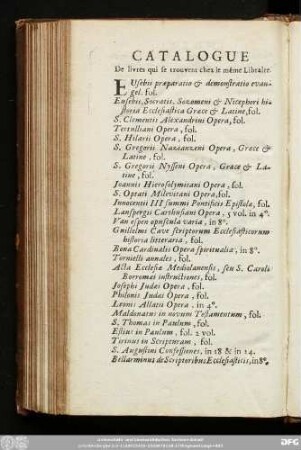 CATALOGUE
De livres qui se trouvent chez le même Libraire.
EUsebii præparatio & demonstratio evan-
gel. fol.
Eusebii, Socratis, Sozomeni & Nicephori hi-
storia Ecclesiastica Græce & Latine, fol.
S. Clementis Alexandrini Opera, fol.
Tertulliani Opera, fol.
S. Hilarii Opera, fol.
S. Gregorii Nanzanzeni Opera, Græce &
Latine, fol.
S. Gregorii Nysseni Opera, Græce & La-
tine, fol.
Joannis Hierosolymitani Opera, fol.
S. Optati Milevitani Opera, fol.
Innocentii III summi Pontificis Epistolæ, fol.
Lanspergii Carthusiani Opera, 5 vol. in 4°.
Van espen opuscula varia, in 8°.
Guillelmi Cave scriptorum Ecclesiasticorum
historia litteraria, fol.
Bona Cardinalis Opera spiritualia, in 8°.
Tornielli annales, fol.
Acta Ecclesiæ Mediolanensis, seu S. Caroli
Borromæi instructiones, fol.
Josephi Judæi Opera, fol.
Philonis Judæi Opera, fol.
Leonis Allatii Opera, in 4°.
Maldonatus in novum Testamentum, fol.
S. Thomas in Paulum, fol.
Estius in Paulum, fol. 2 vol.
Tirinus in Scripturam, fol.
S. Augustini Confessiones, in 18 & in 24.
Bellarminus de Scriptoribus Ecclesiasticis, in 8°.